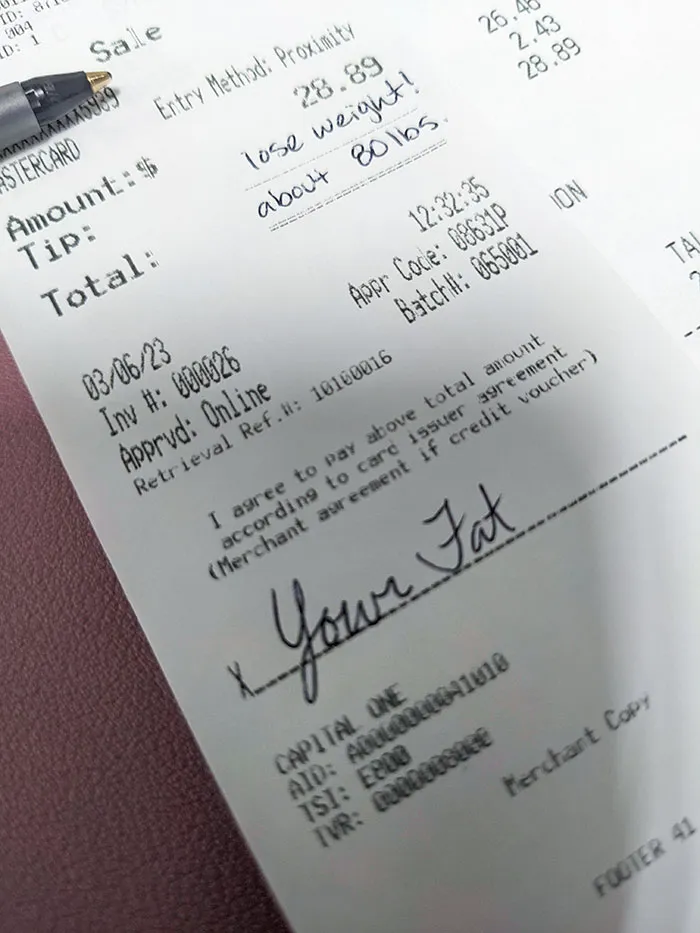 26.46
2.43
28.89
Sale
Entry Method: Proximity
ASTERCARD
Amount:$ 28.89
Tip: lose weight!
Total: about 80 lbs.
03/06/23 12:32:35
Inv #: 000026 Appr Code: 08631P
Apprvd: Online Batch#: 065001
Retrieval Ref.#: 10100016
I agree to pay above total amount
according to card issuer agreement
(Merchant agreement if credit voucher)
X Your Fat
CAPITAL ONE
AID: A0000000041010
TSI: E800
TVR: 0000008000
Merchant Copy
FOOTER 41